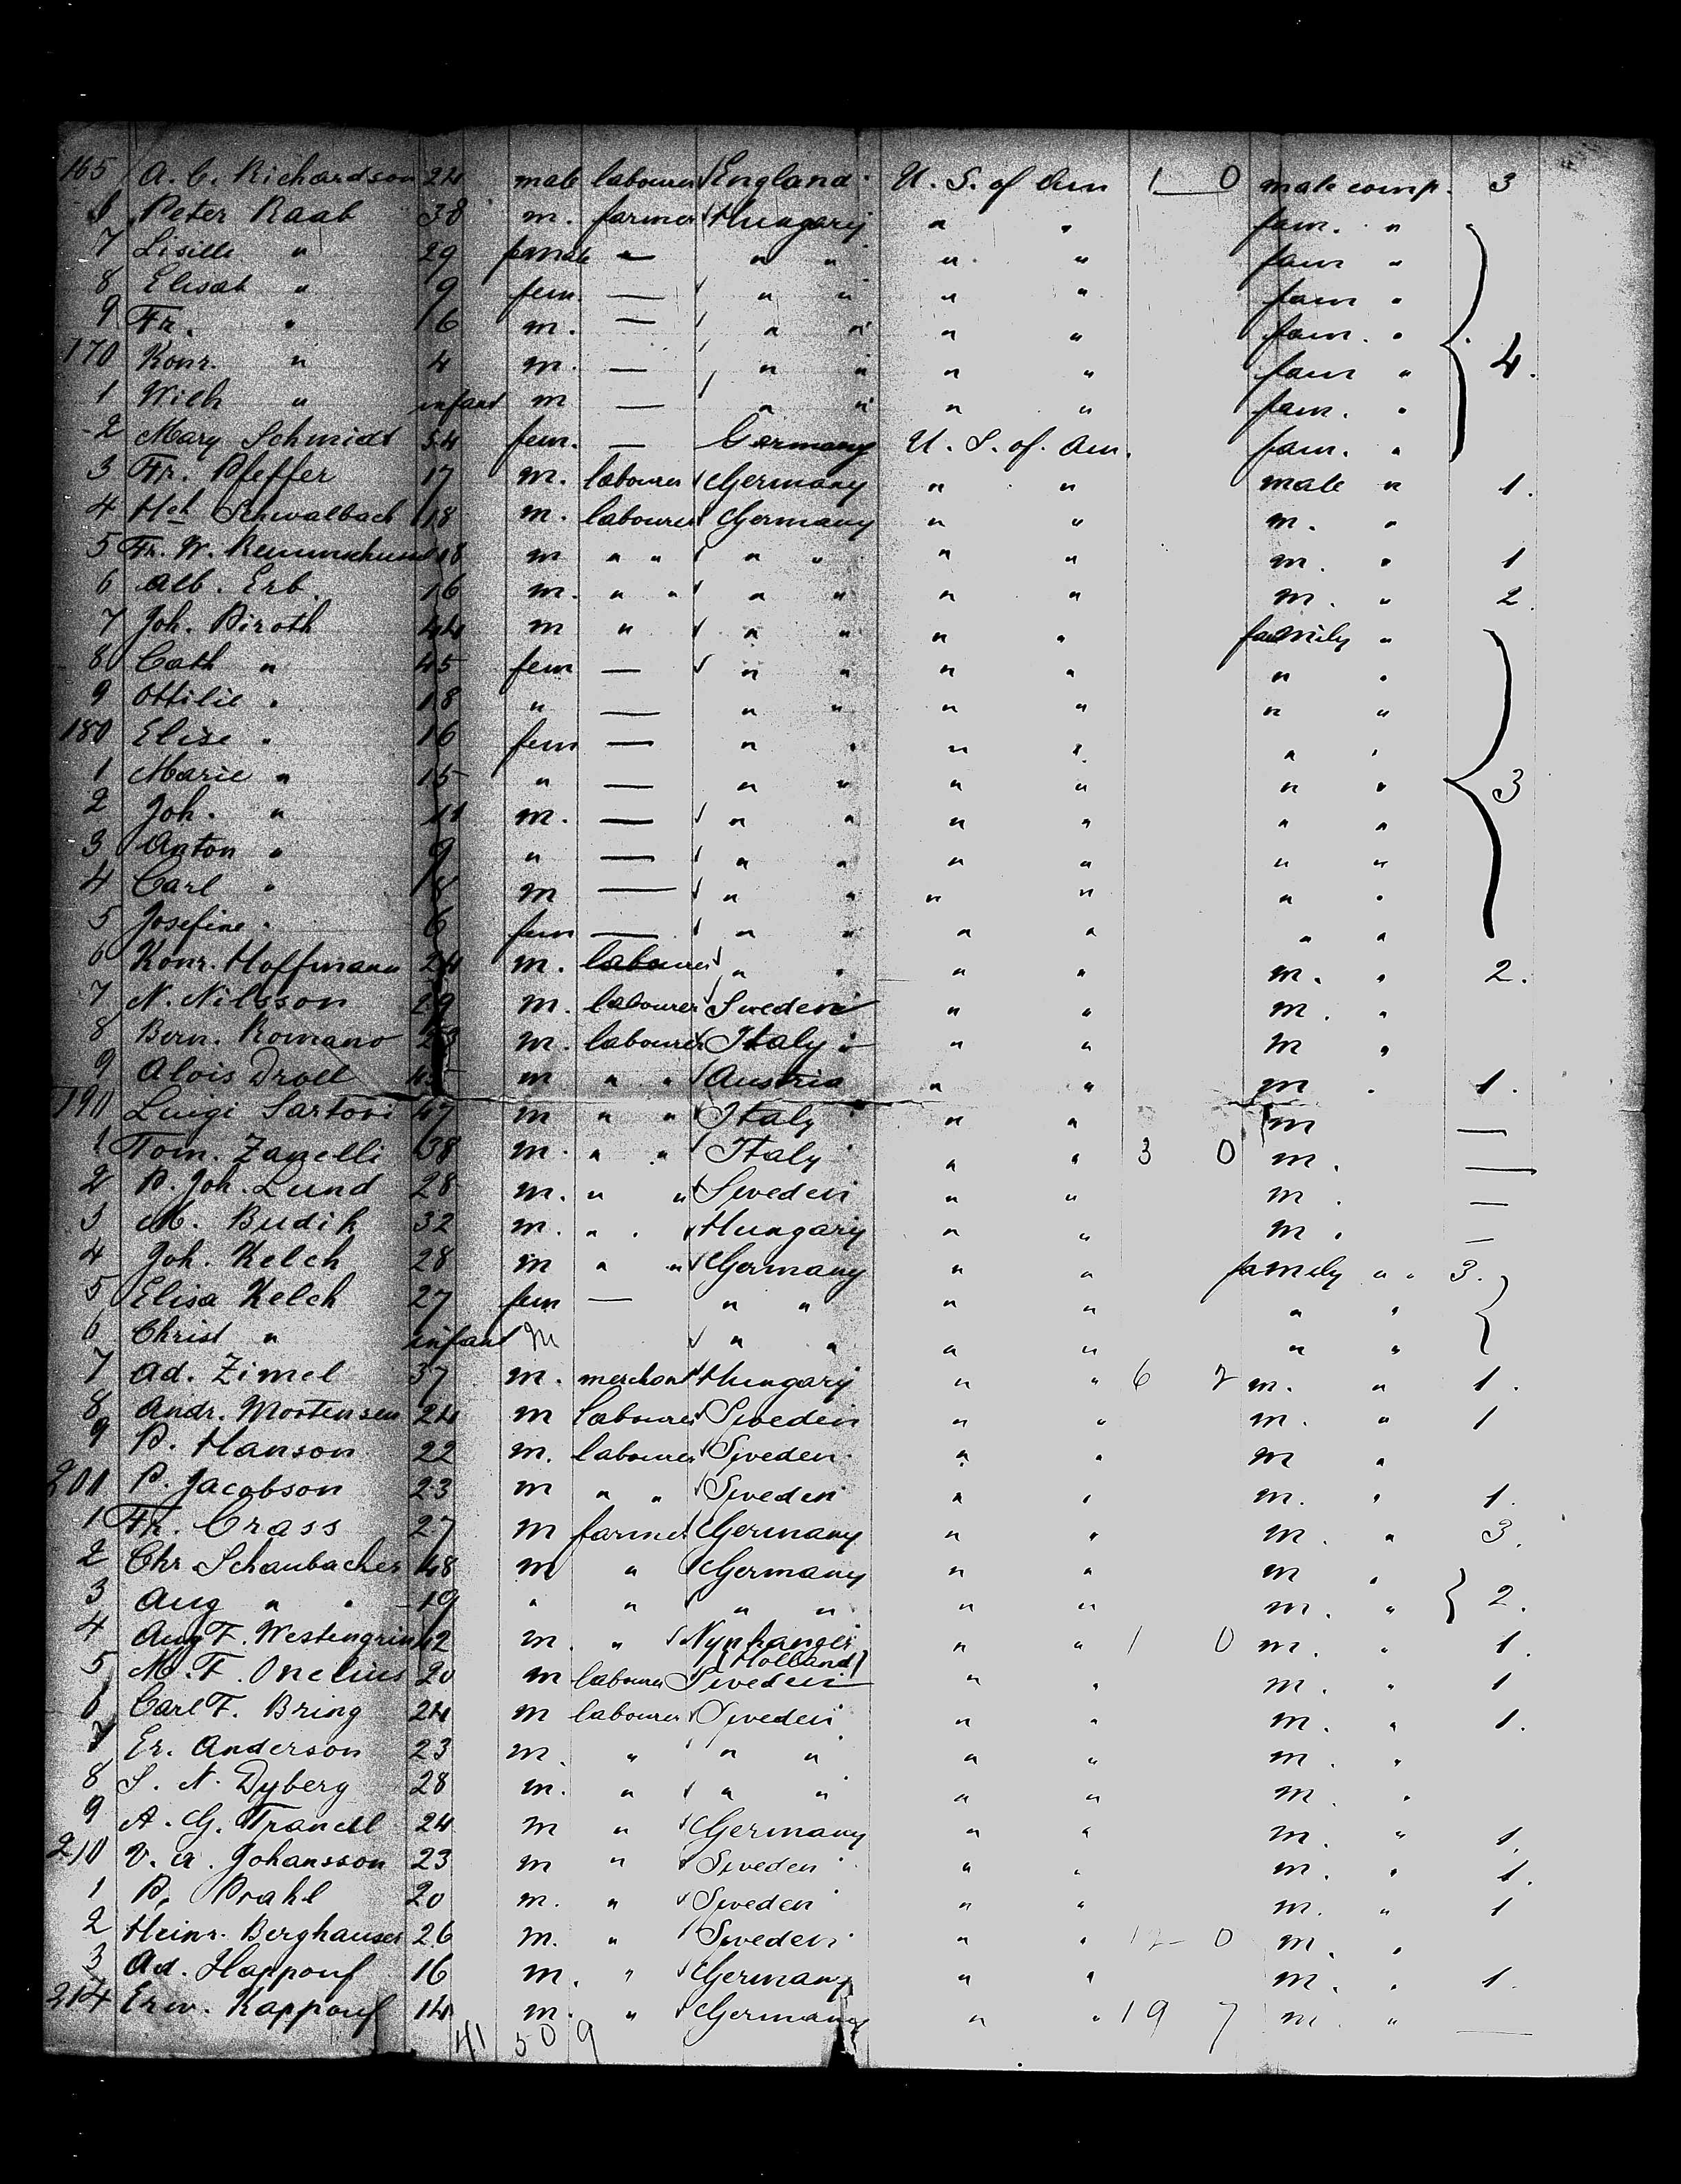 165 A. C. Richardson 24 male labourer England U. S. of Am 1 0 male comp. 3
6 Peter Raab 38 m. farmer Hungary " " fam. "
7 Liselle " 29 female — " " " " fam "
8 Elisab " 9 fem. — " " " " fam "
9 Fr. " 6 m. — " " " " fam. "
170 Konr. " 4 m. — " " " " fam " 4.
1 Wilh " infant m — " " " " fam. "
2 Mary Schmidt 54 fem. — Germany U. S. of. Am. fam. "
3 Fr. Pfeffer 17 m. labourer Germany " " male " 1.
4 Hch Schwalbach 18 m. labourer Germany " " m. "
5 Fr. W. 18 m " " " " " " m. " 1
6 Alb. Erb. 16 m. " " " " " " m. " 2.
7 Joh. Piroth 44 m " " " " " family "
8 Cath " 45 fem — " " " " " "
9 Ottilie " 18 " — " " " " " "
180 Elise " 16 fem — " " " " " "
1 Marie " 15 " — " " " " " " 3
2 Joh. " 11 m. — " " " " " "
3 Anton " 9 " — " " " " " "
4 Carl " 8 m — " " " " " "
5 Josefine " 6 fem — " " " " " "
6 Konr. Hoffmann 24 m. labourer " " " " m. " 2.
7 N. Nilsson 29 m. labourer Sweden " " m. "
8 Bern. Romano 23 m. labourer Italy " " m "
9 Alois Droll 45 m " " Austria " " m " 1.
190 Luigi Sartori 47 m " " Italy " " m —
1 Tom. Zanelli 38 m. " " Italy " " 3 0 m. —
2 P. Joh. Lund 28 m. " " Sweden " " m. —
3 M. Budik 32 m. " " Hungary " " m. —
4 Joh. Kelch 28 m " " Germany " " family " " 3.
5 Elisa Kelch 27 fem — " " " " " "
6 Christ " infant m " " " " " "
7 Ad. Zimel 37 m. merchant Hungary " " 6 2 m. " 1.
8 Andr. Mortensen 24 m labourer Sweden " " m. " 1
9 P. Hanson 22 m. labourer Sweden " " m "
200 P. Jacobson 23 m " " Sweden " " m. " 1.
1 Fr. Crass 27 m farmer Germany " " m. " 3.
2 Chr Schaubacher 48 m " Germany " " m "
3 Aug " " 19 " " " " " " m. " 2.
4 Aug F. Westengrin 42 m. " " " 1 0 m. " 1.
(Holland)
5 M. F. Onelius 20 m labourer Sweden " " m. " 1
6 Carl F. Bring 24 m labourer Sweden " " m. " 1.
7 Er. Anderson 23 m. " " " " " m. "
8 S. N. Dyberg 28 m. " " " " " m. "
9 A. G. 24 m " Germany " " m. " 1.
210 V. A. Johansson 23 m " Sweden " " m. " 1.
1 P. Prahl 20 m. " Sweden " " m. " 1
2 Heinr. Berghauser 26 m. " Sweden " " 0 m. "
3 Ad. Happouf 16 m. " Germany " " m. " 1.
214 Erw. Kappouf 14 m. " Germany " " 19 7 m. " —
41 509